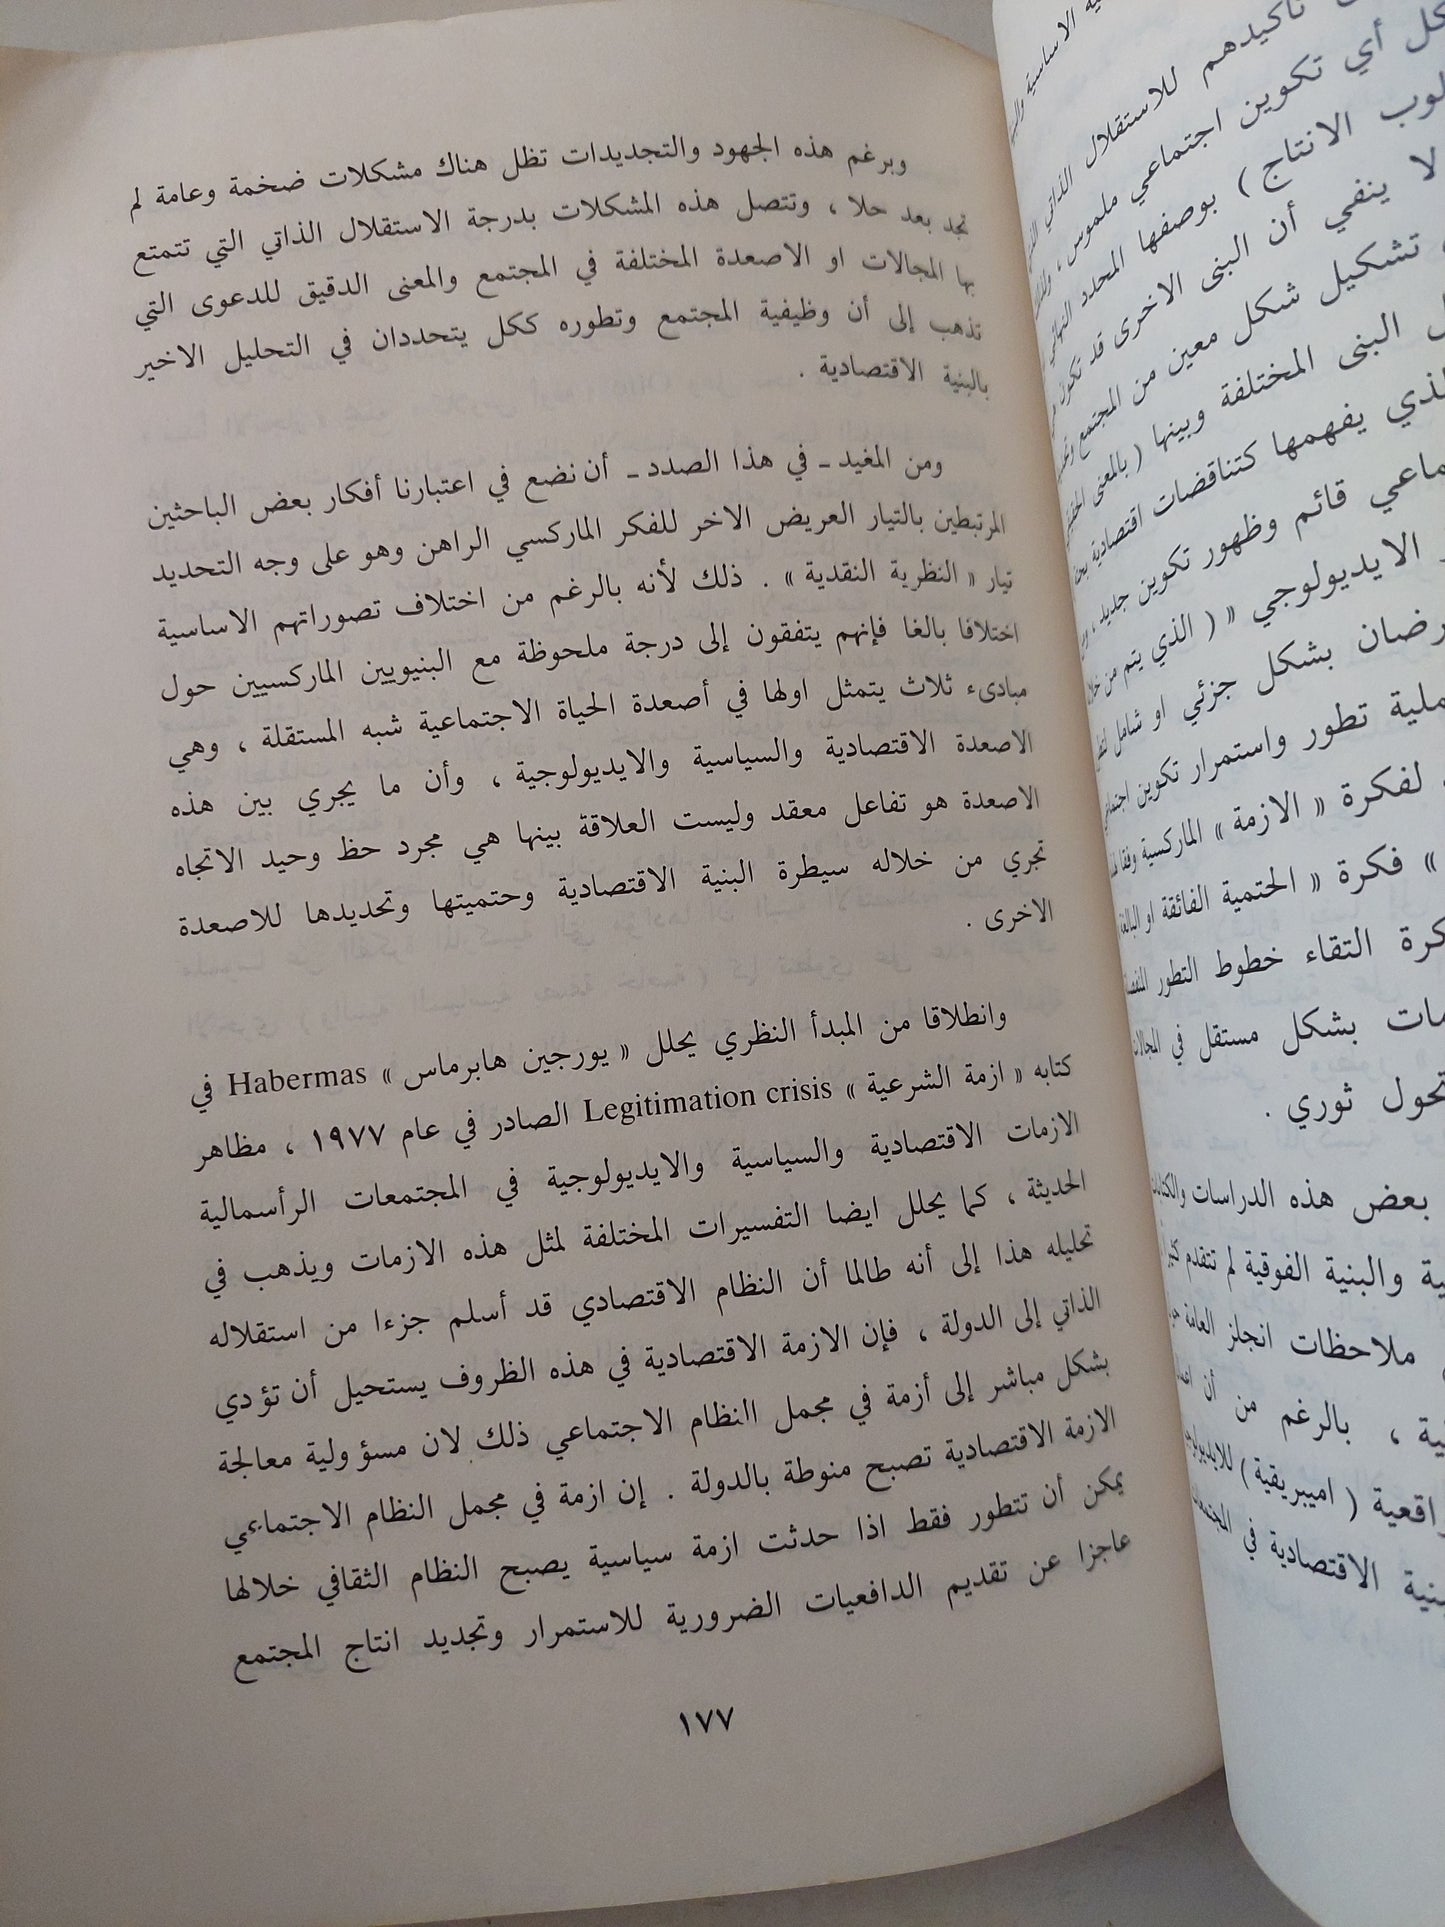 وبرغم هذه الجهود والتجديدات تظل هناك مشكلات ضخمة وعامة لم
تجد بعد حلا ، وتتصل هذه المشكلات بدرجة الاستقلال الذاتي التي تتمتع
بها المجالات او الاصعدة المختلفة في المجتمع والمعنى الدقيق للدعوى التي
تذهب إلى أن وظيفية المجتمع وتطوره ككل يتحددان في التحليل الاخير
بالبنية الاقتصادية .
ومن المفيد ـ في هذا الصدد ـ أن نضع في اعتبارنا أفكار بعض الباحثين
المرتبطين بالتيار العريض الاخر للفكر الماركسي الراهن وهو على وجه التحديد
تيار « النظرية النقدية » . ذلك لأنه بالرغم من اختلاف تصوراتهم الاساسية
اختلافا بالغا فإنهم يتفقون إلى درجة ملحوظة مع البنيويين الماركسيين حول
مبادىء ثلاث يتمثل اولها في أصعدة الحياة الاجتماعية شبه المستقلة ، وهي
الاصعدة الاقتصادية والسياسية والايديولوجية ، وأن ما يجري بين هذه
الاصعدة هو تفاعل معقد وليست العلاقة بينها هي مجرد حظ وحيد الاتجاه
تجري من خلاله سيطرة البنية الاقتصادية وحتميتها وتحديدها للاصعدة
الاخرى .
وانطلاقا من المبدأ النظري يحلل « يورجين هابرماس » Habermas في
كتابه « ازمة الشرعية » Legitimation crisis الصادر في عام ١٩٧٧ ، مظاهر
الازمات الاقتصادية والسياسية والايديولوجية في المجتمعات الرأسمالية
الحديثة ، كما يحلل ايضا التفسيرات المختلفة لمثل هذه الازمات ويذهب في
تحليله هذا إلى أنه طالما أن النظام الاقتصادي قد أسلم جزءا من استقلاله
الذاتي إلى الدولة ، فإن الازمة الاقتصادية في هذه الظروف يستحيل أن تؤدي
بشكل مباشر إلى أزمة في مجمل االنظام الاجتماعي ذلك لان مسؤولية معالجة
الازمة الاقتصادية تصبح منوطة بالدولة . إن ازمة في مجمل النظام الاجتماعي
يمكن أن تتطور فقط اذا حدثت ازمة سياسية يصبح النظام الثقافي خلالها
عاجزا عن تقديم الدافعيات الضرورية للاستمرار وتجديد انتاج المجتمع
١٧٧
تأكيدهم للاستقلال الذاتي
كل أي تكوين اجتماعي ملموس ،
الانتاج ) بوصفها المحدد النهائي
لا ينفي أن البنى الاخرى قد تكون
تشكيل شكل معين من المجتمع
البنى المختلفة وبينها ( بالمعنى
يفهمها كتناقضات اقتصادية
قائم وظهور تكوين جديد ،
الايديولوجي » ( الذي يتم من خلال
بشكل جزئي او شامل
تطور واستمرار تكوين
لفكرة « الازمة » الماركسية وفقا
» فكرة « الحتمية الفائقة او
التقاء خطوط التطور
بشكل مستقل في المجالات
تحول ثوري .
بعض هذه الدراسات والكتابات
والبنية الفوقية لم تتقدم كثيرا
ملاحظات انجلز العامة
، بالرغم من أن
( امبيريقية )
الاقتصادية في